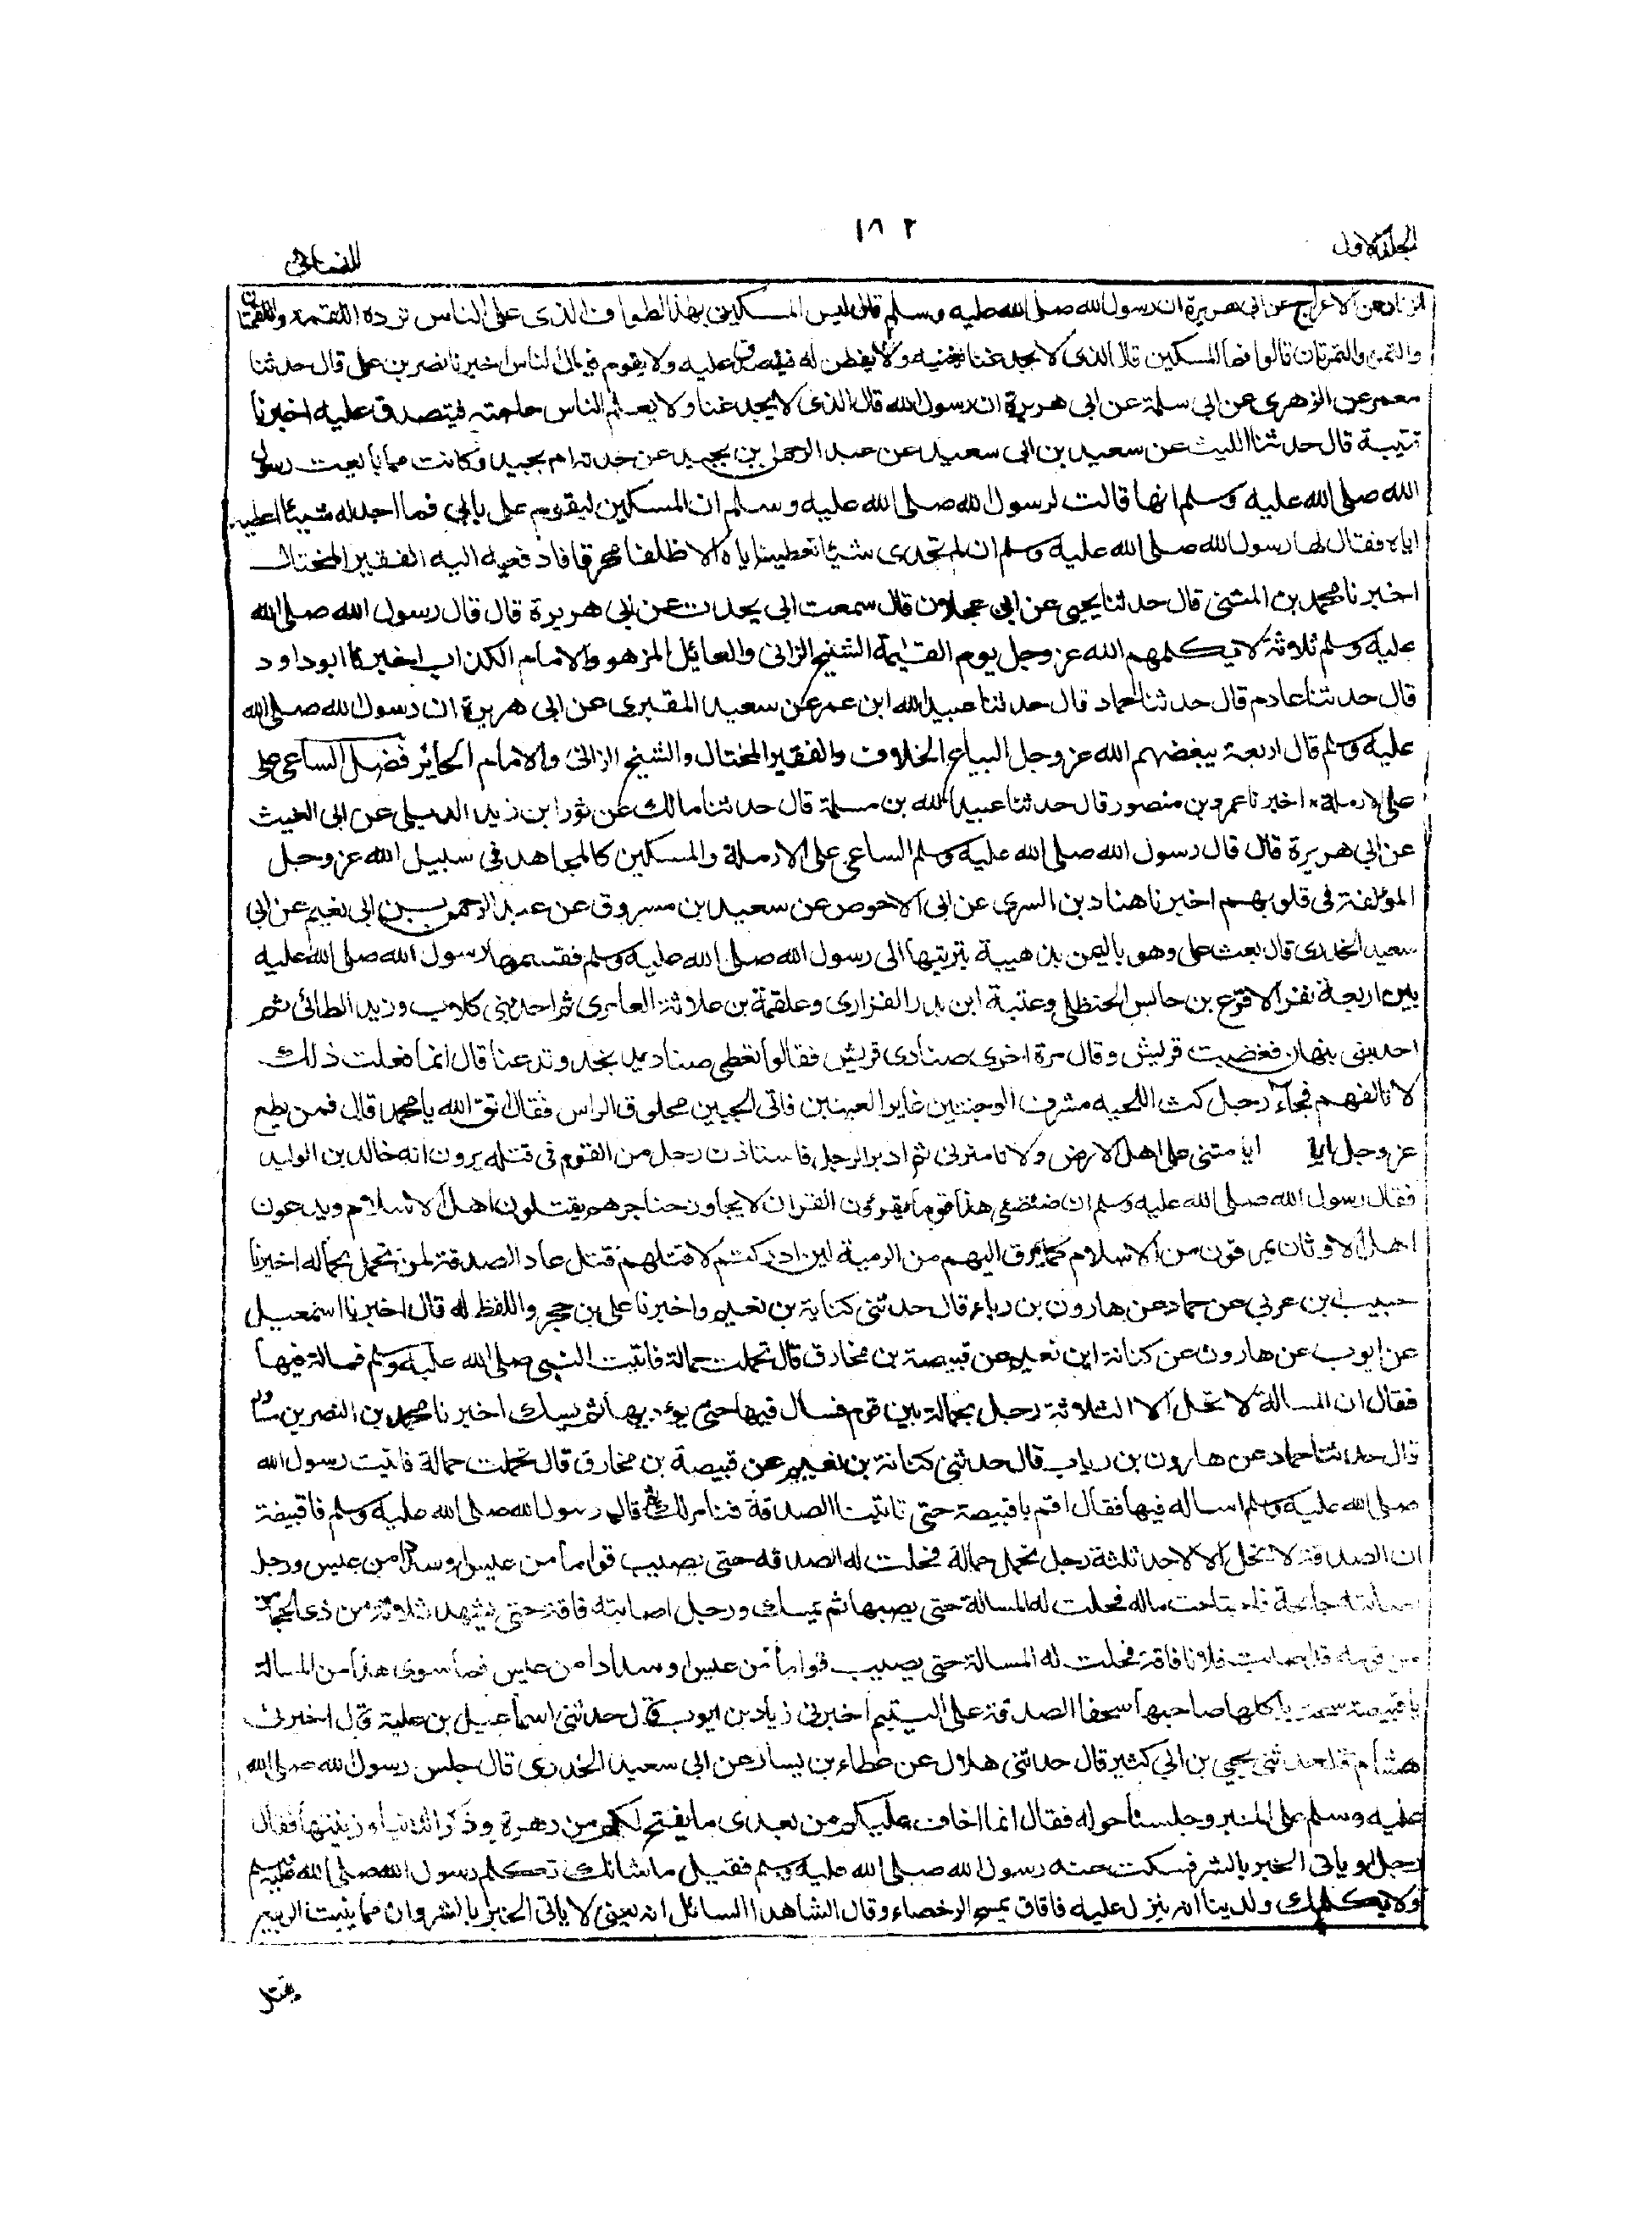 الجلد الاول
١٨٢
للنسائى
الزناد عن الاعرج عن ابى هريرة ان رسول الله صلى الله عليه وسلم قال ليس المسكين بهذا الطواف الذى على الناس ترده اللقمة واللقمتان
والتمرة والتمرتان قالوا فما المسكين قال الذى لا يجد غنا يغنيه ولا يفطن له فيتصدق عليه ولا يقوم فيسال الناس اخبرنا نصر بن على قال حدثنا
معمر عن الزهرى عن ابى سلمة عن ابى هريرة ان رسول الله قال الذى لا يجد غنا ولا يعلم الناس حاجته فيتصدق عليه اخبرنا
قتيبة قال حدثنا الليث عن سعيد بن ابى سعيد عن عبد الرحمن بن بجيد عن جدته ام بجيد وكانت مما بايعت رسول
الله صلى الله عليه وسلم انها قالت لرسول الله صلى الله عليه وسلم ان المسكين ليقوم على بابى فما اجد له شيئا اعطيه
اياه فقال لها رسول الله صلى الله عليه وسلم ان لم تجدى شيئا تعطينه اياه الا ظلفا محرقا فادفعيه اليه الفقير المختال
اخبرنا محمد بن المثنى قال حدثنا يحيى عن ابى عجلان قال سمعت ابى يحدث عن ابى هريرة قال قال رسول الله صلى الله
عليه وسلم ثلاثة لا يكلمهم الله عز وجل يوم القيمة الشيخ الزانى والعائل المزهو والامام الكذاب اخبرنا ابو داود
قال حدثنا عارم قال حدثنا حماد قال حدثنا عبيد الله ابن عمر عن سعيد المقبرى عن ابى هريرة ان رسول الله صلى الله
عليه وسلم قال اربعة يبغضهم الله عز وجل البياع الحلاف والفقير المختال والشيخ الزانى والامام الجائر فضل الساعى على
على الارملة اخبرنا عمرو بن منصور قال حدثنا عبيد الله بن مسلمة قال حدثنا مالك عن ثور ابن زيد الديلى عن ابى الغيث
عن ابى هريرة قال قال رسول الله صلى الله عليه وسلم الساعى على الارملة والمسكين كالمجاهد فى سبيل الله عز وجل
المؤلفة فى قلوبهم اخبرنا هناد بن السرى عن ابى الاحوص عن سعيد ابن مسروق عن عبد الرحمن بن ابى نعيم عن ابى
سعيد الخدرى قال بعث على وهو باليمن بذهيبة بتربتها الى رسول الله صلى الله عليه وسلم فقسمها رسول الله صلى الله عليه
بين اربعة نفر الاقرع بن حابس الحنظلى وعتبة ابن بدر الفزارى وعلقمة بن علاثة العامرى ثم احد بنى كلاب وزيد الطائى ثم
احد بنى بنهان فغضبت قريش وقال مرة اخرى صنادى قريش فقالوا تعطى صناديد نجد وتدعنا قال انما فعلت ذلك
لاتالفهم فجاء رجل كث اللحيه مشرف الوجنتين غاير العينين ناتى الجبين محلوق الراس فقال اتق الله يا محمد قال فمن يطع
عز وجل ايا ايا متنى على اهل الارض ولا تامنونى ثم ادبر الرجل فاستاذن رجل من القوم فى قتله يرون انه خالد بن الوليد
فقال رسول الله صلى الله عليه وسلم ان ضئضئى هذا قوما يقرءون القران لا يجاوز حناجرهم يقتلون اهل الاسلام ويدعون
اهل الاوثان يمرقون من الاسلام كما يمرق اليهم من الرمية لين ادركتهم لاقتلهم قتل عاد الصدقة لمن تحمل بحماله اخبرنا
حبيب بن عربى عن حماد عن هارون بن رياب قال حدثنى كنانة بن نعيم واخبرنا على بن حجر واللفظ له قال اخبرنا اسمعيل
عن ايوب عن هارون عن كنانة ابن نعيم عن قبيصة بن مخارق قال تحملت حمالة فاتيت النبى صلى الله عليه وسلم فسالته فيها
فقال ان المسالة لا تحل الا الثلاثة رجل بحمالة بين قوم فسال فيها حتى يؤديها ثم يمسك اخبرنا محمد بن النضر بن مساور
قال حدثنا حماد عن هارون بن رياب قال حدثنى كنانة بن نعيم عن قبيصة بن مخارق قال تحملت حمالة فاتيت رسول الله
صلى الله عليه وسلم اساله فيها فقال اقم يا قبيصة حتى تاتينا الصدقة فنامر لك ثم قال رسول الله صلى الله عليه وسلم يا قبيصة
ان الصدقة لا تحل الا لاحد ثلثة رجل تحمل حمالة فحلت له الصدقه حتى يصيب قواما من عيش او سدادا من عيش ورجل
اصابته جايحة فاجتاحت ماله فحلت له المسالة حتى يصيبها ثم يمسك ورجل اصابته فاقة حتى يشهد ثلاثة من ذى الحجا
من قومه قد اصابت فلانا فاقة فحلت له المسالة حتى يصيب قواما من عيش او سدادا من عيش فما سوى هذا من المسالة
يا قبيصة سحت ياكلها صاحبها سحتا الصدقة على اليتيم اخبرنى زياد بن ايوب قال حدثنى اسماعيل بن علية قال اخبرنى
هشام قال حدثنى يحيى بن ابى كثير قال حدثنى هلال عن عطاء بن يسار عن ابى سعيد الخدرى قال جلس رسول الله صلى الله
عليه وسلم على المنبر وجلسنا حوله فقال انما اخاف عليكم من بعدى ما يفتح لكم من زهرة وذكر الدنيا وزينتها فقال
رجل او ياتى الخير بالشر فسكت عنه رسول الله صلى الله عليه وسلم فقيل ما شانك تكلم رسول الله صلى الله عليه وسلم
ولا يكلمك ولدينا انه ينزل عليه فافاق يمسح الرحضاء وقال الشاهد السائل انه يعنى لا ياتى الخير بالشر وان مما ينبت الربيع
يقتل